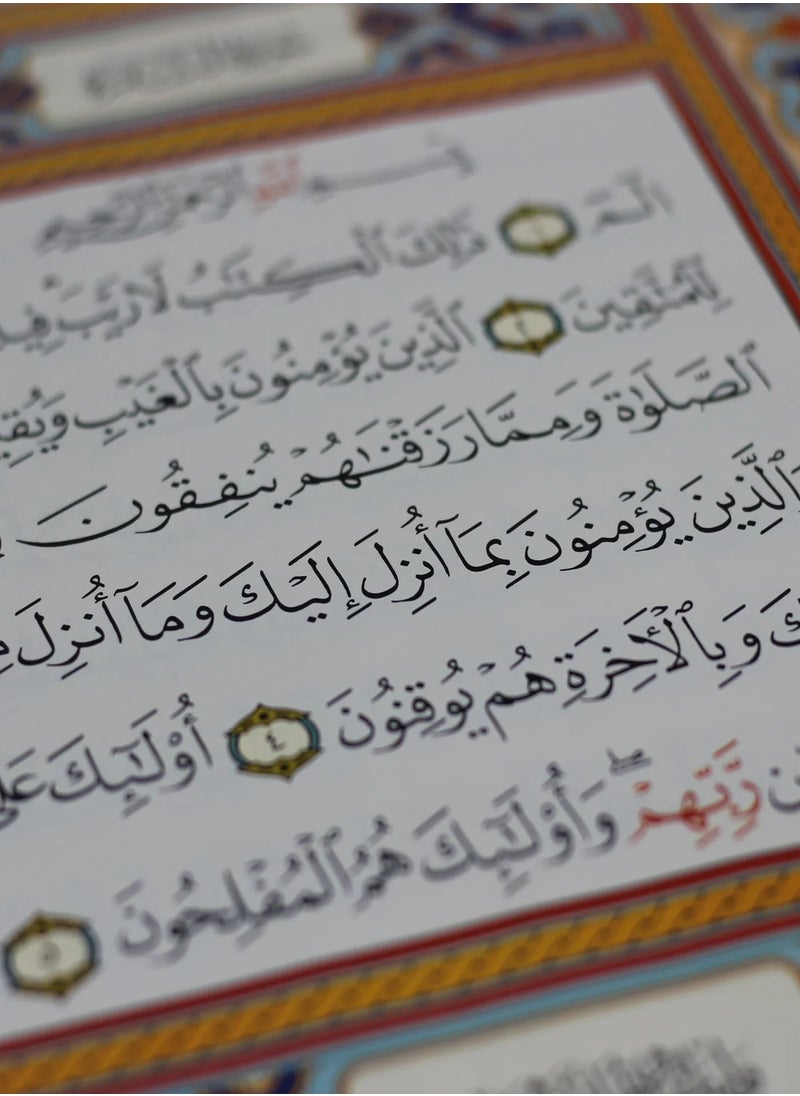 بِسْمِ ٱللَّهِ ٱلرَّحْمَٰنِ ٱلرَّحِيمِ
الٓمٓ ١ ذَٰلِكَ ٱلْكِتَٰبُ لَا رَيْبَ فِي
لِلْمُتَّقِينَ ٢ ٱلَّذِينَ يُؤْمِنُونَ بِٱلْغَيْبِ وَيُقِي
ٱلصَّلَوٰةَ وَمِمَّا رَزَقْنَٰهُمْ يُنفِقُونَ
وَٱلَّذِينَ يُؤْمِنُونَ بِمَآ أُنزِلَ إِلَيْكَ وَمَآ أُنزِلَ مِ
كَ وَبِٱلْأَخِرَةِ هُمْ يُوقِنُونَ ٤ أُو۟لَٰٓئِكَ عَلَ
ن رَّبِّهِمْ ۖ وَأُو۟لَٰٓئِكَ هُمُ ٱلْمُفْلِحُونَ ٥